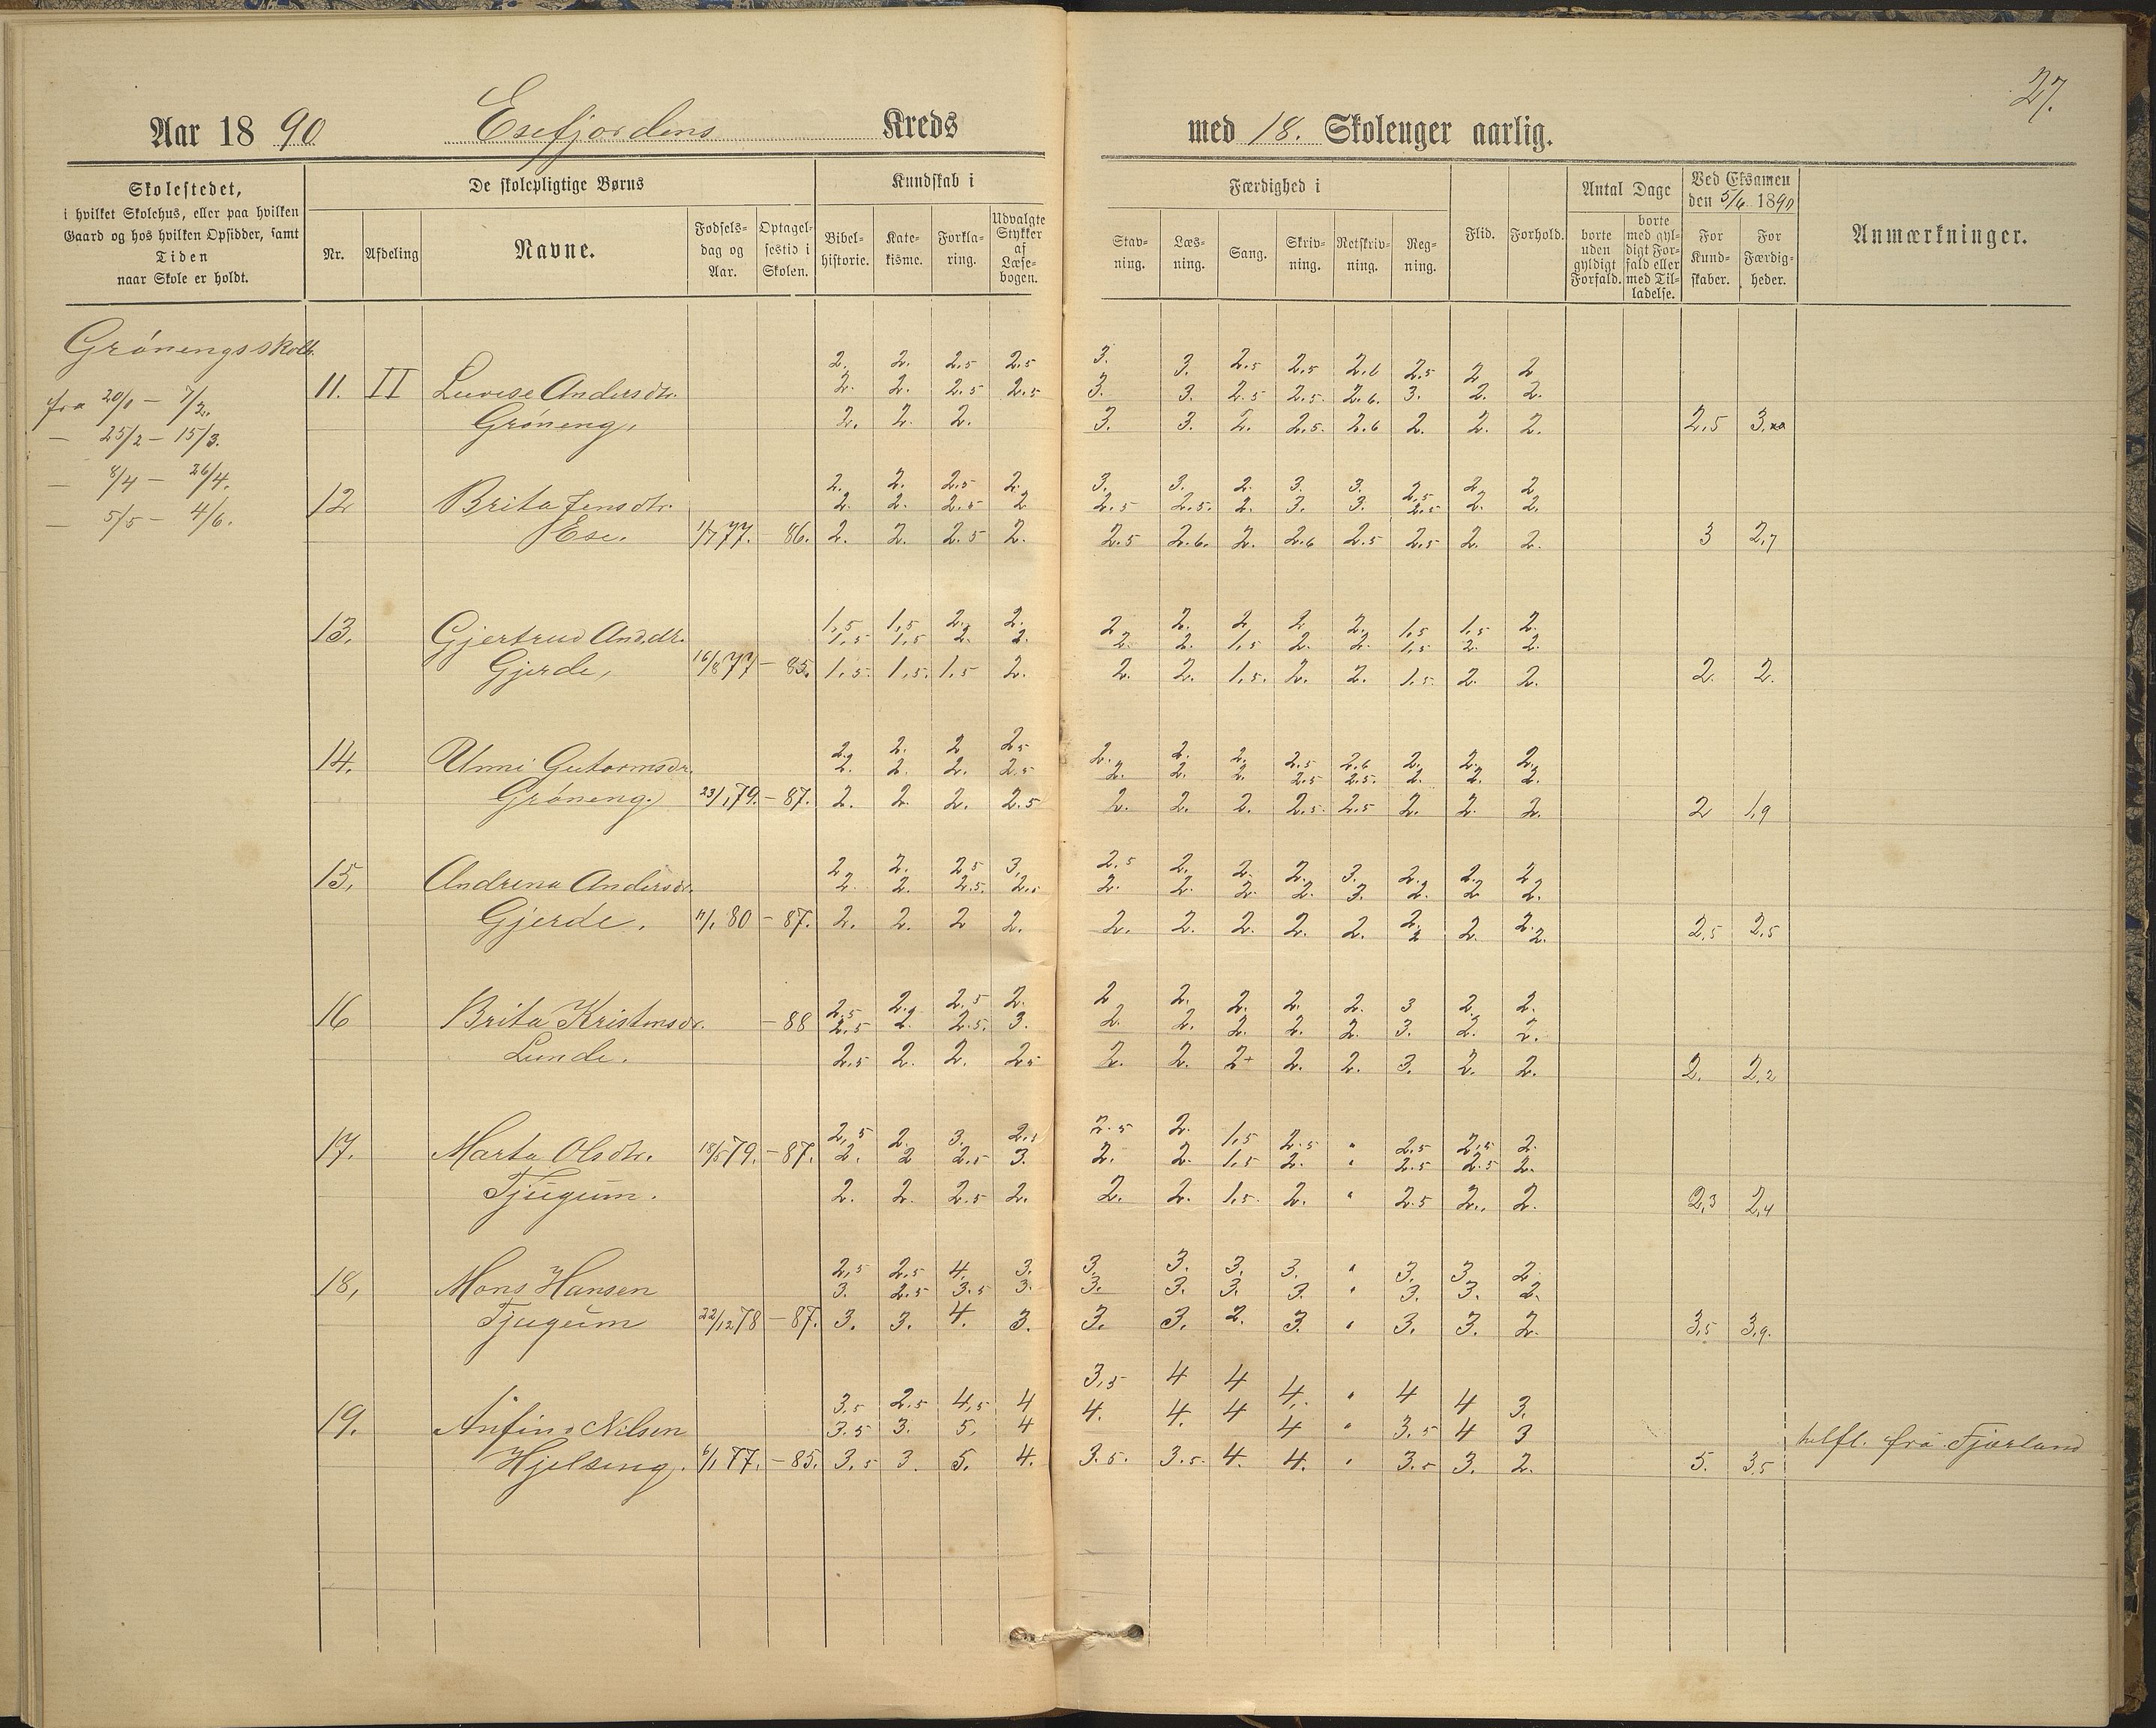 27.
Aar 1890 Esefjordens Kreds med 18. Skoleuger aarlig.
Skolestedet,
i hvilket Skolehus, eller paa hvilken
Gaard og hos hvilken Opsidder, samt
Tiden
naar Skole er holdt.
De skolepligtige Børns
Nr. Afdeling Navne. Fødsels-dag og Aar. Optagel-sestid i Skolen.
Kundskab i
Bibel-historie. Kate-kisme. Forkla-ring. Udvalgte Stykker af Læse-bogen.
Færdighed i
Stav-ning. Læs-ning. Sang. Skriv-ning. Retskriv-ning. Reg-ning.
Flid. Forhold.
Antal Dage
borte uden gyldigt Forfald. borte med gyl-digt For-fald eller med Til-ladelse.
Ved Eksamen den 5/6 1890
For Kund-skaber. For Færdig-heder.
Anmærkninger.
Grónengsskole
fra 20/1 - 7/2.
- 25/2 - 15/3.
- 8/4 - 26/4.
- 5/5 - 4/6.
2. 2. 2.5 2.5 3. 3. 2.5 2.5 2.6 2.5 2 2
11. II Lovise Andersdtr. 2. 2. 2.5 2.5 3. 3. 2.5 2.5. 2.6. 3. 2. 2.
Gróneng, 2. 2. 2. 3. 3. 2. 2.5. 2.6 2. 2. 2. 2,5
2. 2. 2.5 2. 3. 3. 2. 3. 3. 2.5 2. 2.
12 Brita Jensdtr. 2. 2. 2.5 2 2.5 2.5. 2. 3. 3. 2.5 2. 2.
Ese. 1/7 77. - 86. 2. 2. 2.5 2. 2.5 2.6. 2. 2.6 2.5 2.5 2. 2. 3 2,7
1,5 1,5 2. 2. 2. 2. 2 2 2. 1,5 1,5 2.
13. Gjertrud And.dtr. 1,5 1,5 2. 2. 2. 2. 1,5 2. 2. 1,5 2. 2.
Gjerde, 16/8 77 - 85. 1,5. 1,5. 1,5 2. 2. 2. 1,5. 2. 2. 1,5. 2. 2. 2. 2.
2. 2. 2 2.5 2. 2. 2. 2.5 2.6 2. 2. 2.
14. Unni Gutormsdr. 2. 2. 2. 2.5 2. 2. 2. 2.5 2.5. 2. 2. 2.
Gróneng. 23/1 79. - 87. 2. 2. 2. 2.5 2. 2. 2. 2.5. 2.5 2. 2. 2. 2 1,9
2 2. 2.5 3. 2.5 2. 2. 2. 3. 2. 2. 2
15. Andrina Andersdr. 2. 2. 2.5. 2.5 2. 2. 2. 2. 3. 2. 2 2.
Gjerde. 11/1 80 - 87. 2. 2. 2 2. 2. 2. 2. 2. 2. 2. 2 2. 2. 2. 2,5 2.5
2.5 2. 2.5 2. 2 2. 2. 2. 2. 3 2. 2.
16 Brita Kristensdr. - 88 2.5 2. 2.5. 3. 2. 2. 2. 2. 2. 3. 2. 2.
Lunde. 2.5 2. 2. 2.5 2. 2. 2+ 2. 2. 3. 2. 2. 2. 2,2
2,5 2. 3. 2.5 2.5 2. 1,5 2.5 " 2,5 2,5 2.
17. Marta Olsdtr. 18/5 79. - 87. 2. 2 2.5 3. 2. 2. 1,5 2. " 2.5 2.5 2.
Tjugum. 2. 2. 2.5 2. 2. 2. 1,5. 2. " 2.5 2. 2. 2,3 2,4
2,5 2,5 4. 3. 3. 3. 3. 3. " 3. 3 2.
18, Mons Hansen 3. 2.5 3.5 3. 3. 3. 3. 3. " 3. 3. 2.
Tjugum 22/12 78 - 87. 3. 3. 4. 3. 3. 3. 2. 3. " 3. 3. 2. 3,5 3,9.
3,5 2.5 4,5 4 3,5 4 4 4. " 4 4 3.
19. Anfin Nilsen 3.5 3. 5. 4 4. 4. 4 4 " 3.5 4 3
Hjelseng. 6/1 77. - 85. 3.5 3. 5. 4. 3.5. 3.5. 4. 4. " 3.5 3. 2. 5. 3,5 fra Fjærland